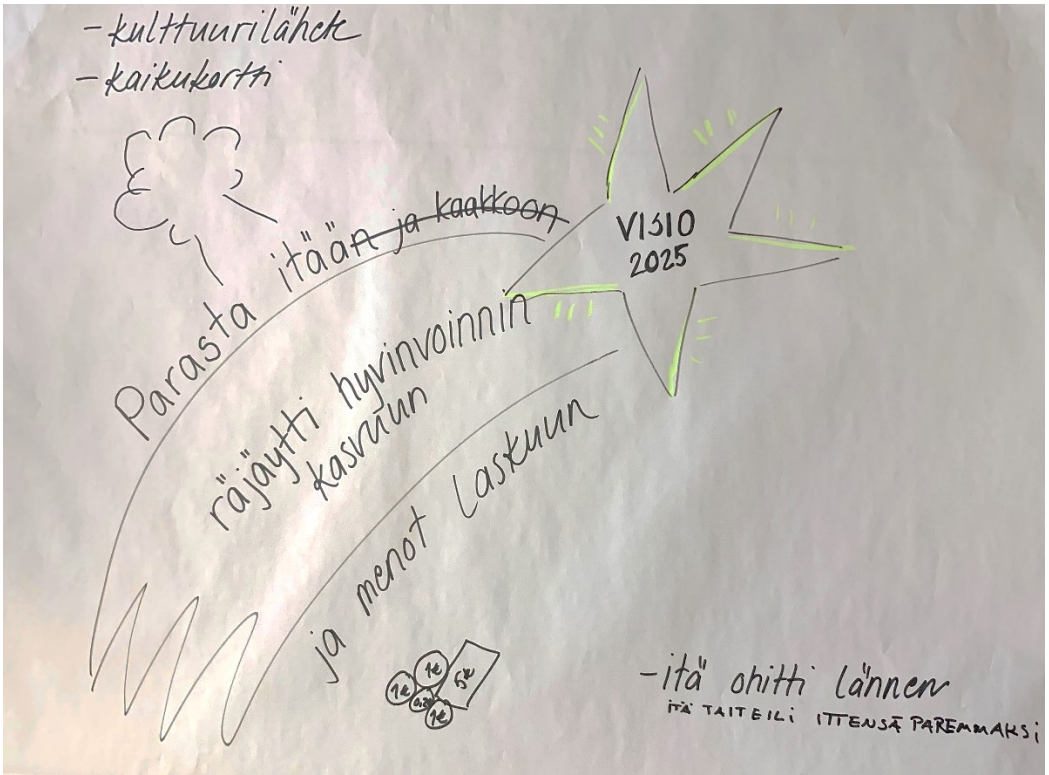 - kulttuurilähete
- kaikukortti
Parasta itään ja kaakkoon
VISIO
2025
räjäytti hyvinvoinnin
kasvuun
ja menot laskuun
1€
1€
5€
0,20
1€
- itä ohitti lännen
ITÄ TAITEILI ITTENSÄ PAREMMAKSI